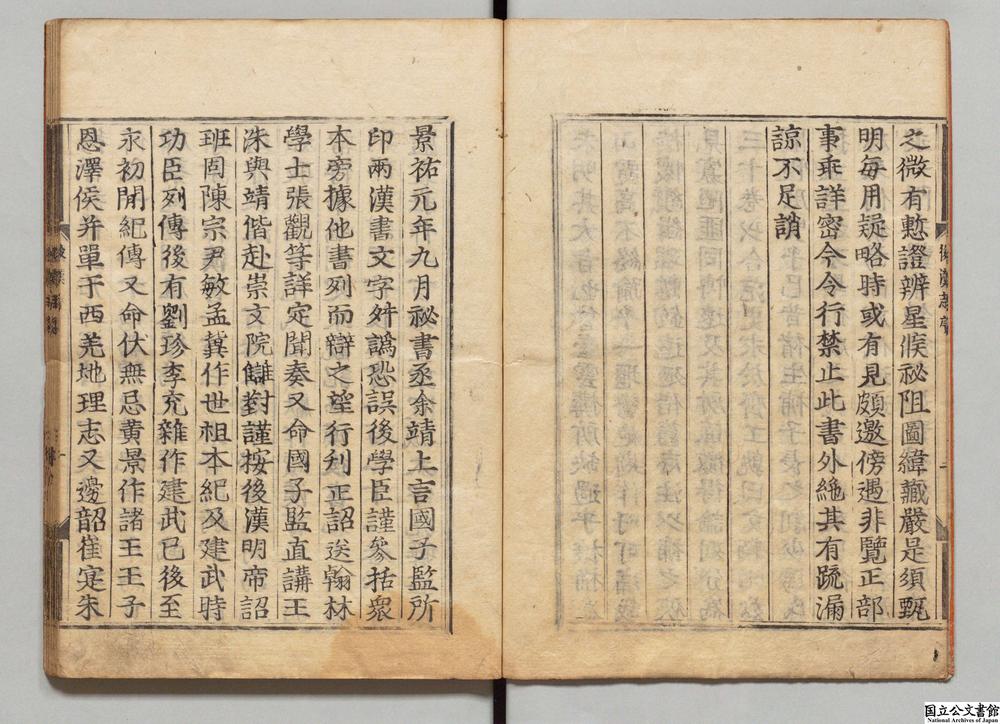 之微有慙證辨星候祕阻圖緯藏嚴是須甄
明每用疑略時或有見頗邀傍遇非覽正部
事乖詳密今令行禁止此書外絶其有䟽漏
諒不足誚
景祐元年九月祕書丞余靖上言國子監所
印兩漢書文字舛譌恐誤後學臣謹參括衆
本旁據他書列而辯之望行刋正詔送翰林
學士張觀等詳定聞奏又命國子監直講王
洙與靖偕赴崇文院讎對謹按後漢明帝詔
班固陳宗尹敏孟兾作世祖本紀及建武時
功臣列傳後有劉珍李充雜作建武已後至
永初間紀傳又命伏無忌黄景作諸王王子
恩澤侯并單于西羌地理志又邊韶崔寔朱
国立公文書館
National Archives of Japan